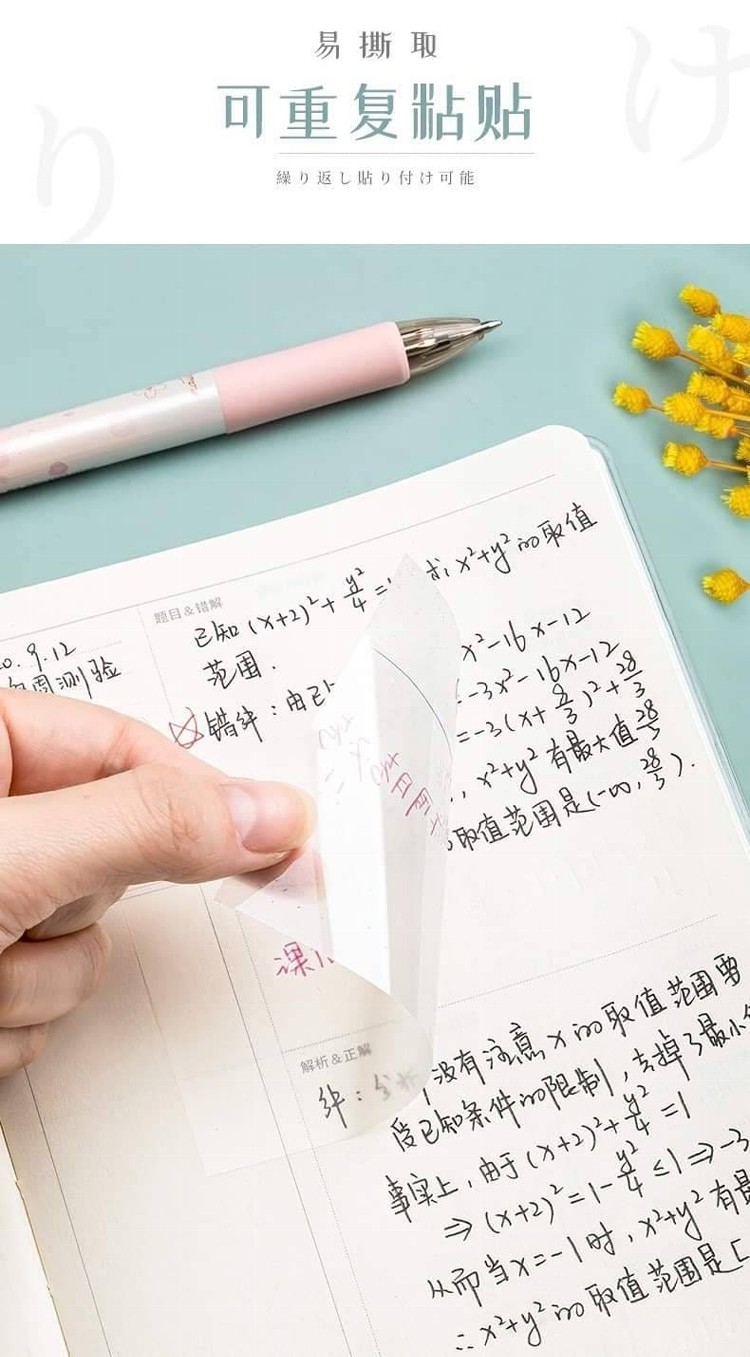 易撕取
可重复粘贴
繰り返し貼り付け可能
り
け
题目&错解
已知 (x+2)²+y²/4=1, 求 x²+y² 的取值
范围.
0.9.12
周测验
错解:由已
x²-16x-12
=-3x²-16x-12
=-3(x+8/3)²+28/3
, x²+y² 有最大值28/3
取值范围是(-∞, 28/3).
课
解析&正解
解:分析
没有注意 x 的取值范围要
受已知条件的限制,去掉了最小
事实上,由于 (x+2)²+y²/4=1
⇒ (x+2)²=1-y²/4≤1⇒-3
从而当x=-1时,x²+y² 有最
∴x²+y² 的取值范围是[